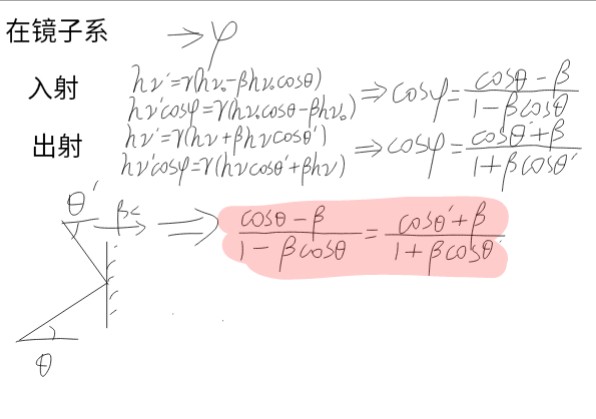 在镜子系 → φ
入射 hν'=γ(hν₀-βhν₀cosθ)
hν'cosφ=γ(hν₀cosθ-βhν₀) ⇒cosφ=\frac{cosθ-β}{1-βcosθ}
出射 hν'=γ(hν+βhνcosθ')
hν'cosφ=γ(hνcosθ'+βhν) ⇒cosφ=\frac{cosθ'+β}{1+βcosθ'}
θ' βc ⇒ \frac{cosθ-β}{1-βcosθ}=\frac{cosθ'+β}{1+βcosθ'}
θ